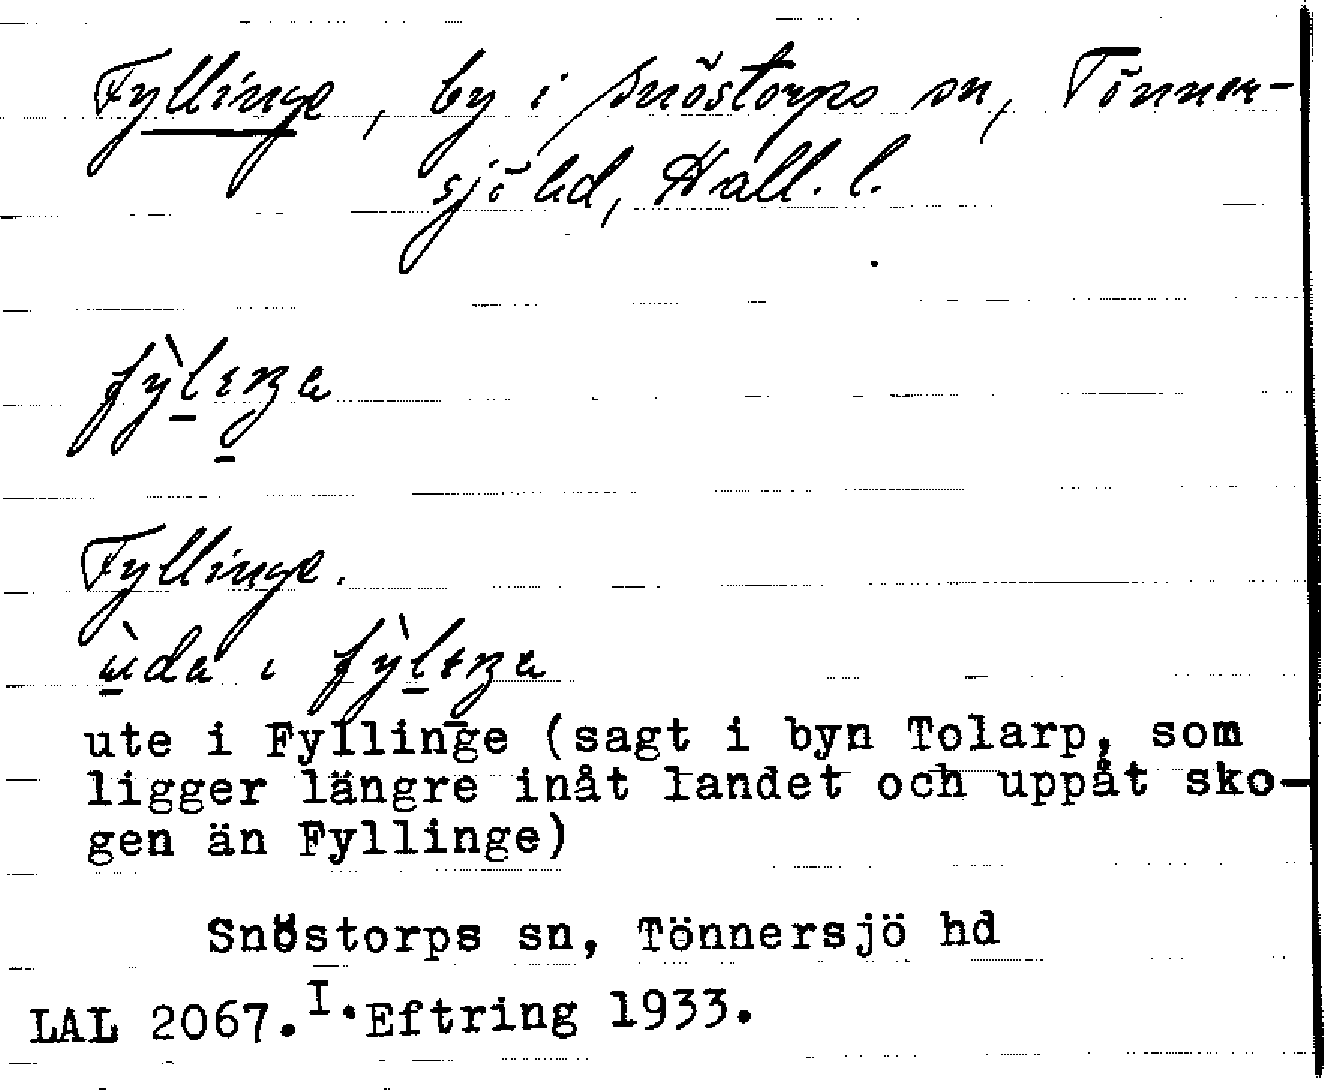 Fyllinge, by i Snöstorps sn, Tönner-
sjö hd, Hall. l.
fỳlıŋa
Fyllinge.
ùda ı fỳlıŋa
ute i Fyllinge (sagt i byn Tolarp, som
ligger längre inåt landet och uppåt sko-
gen än Fyllinge)
Snöstorps sn, Tönnersjö hd
LAL 2067.I. Eftring 1933.